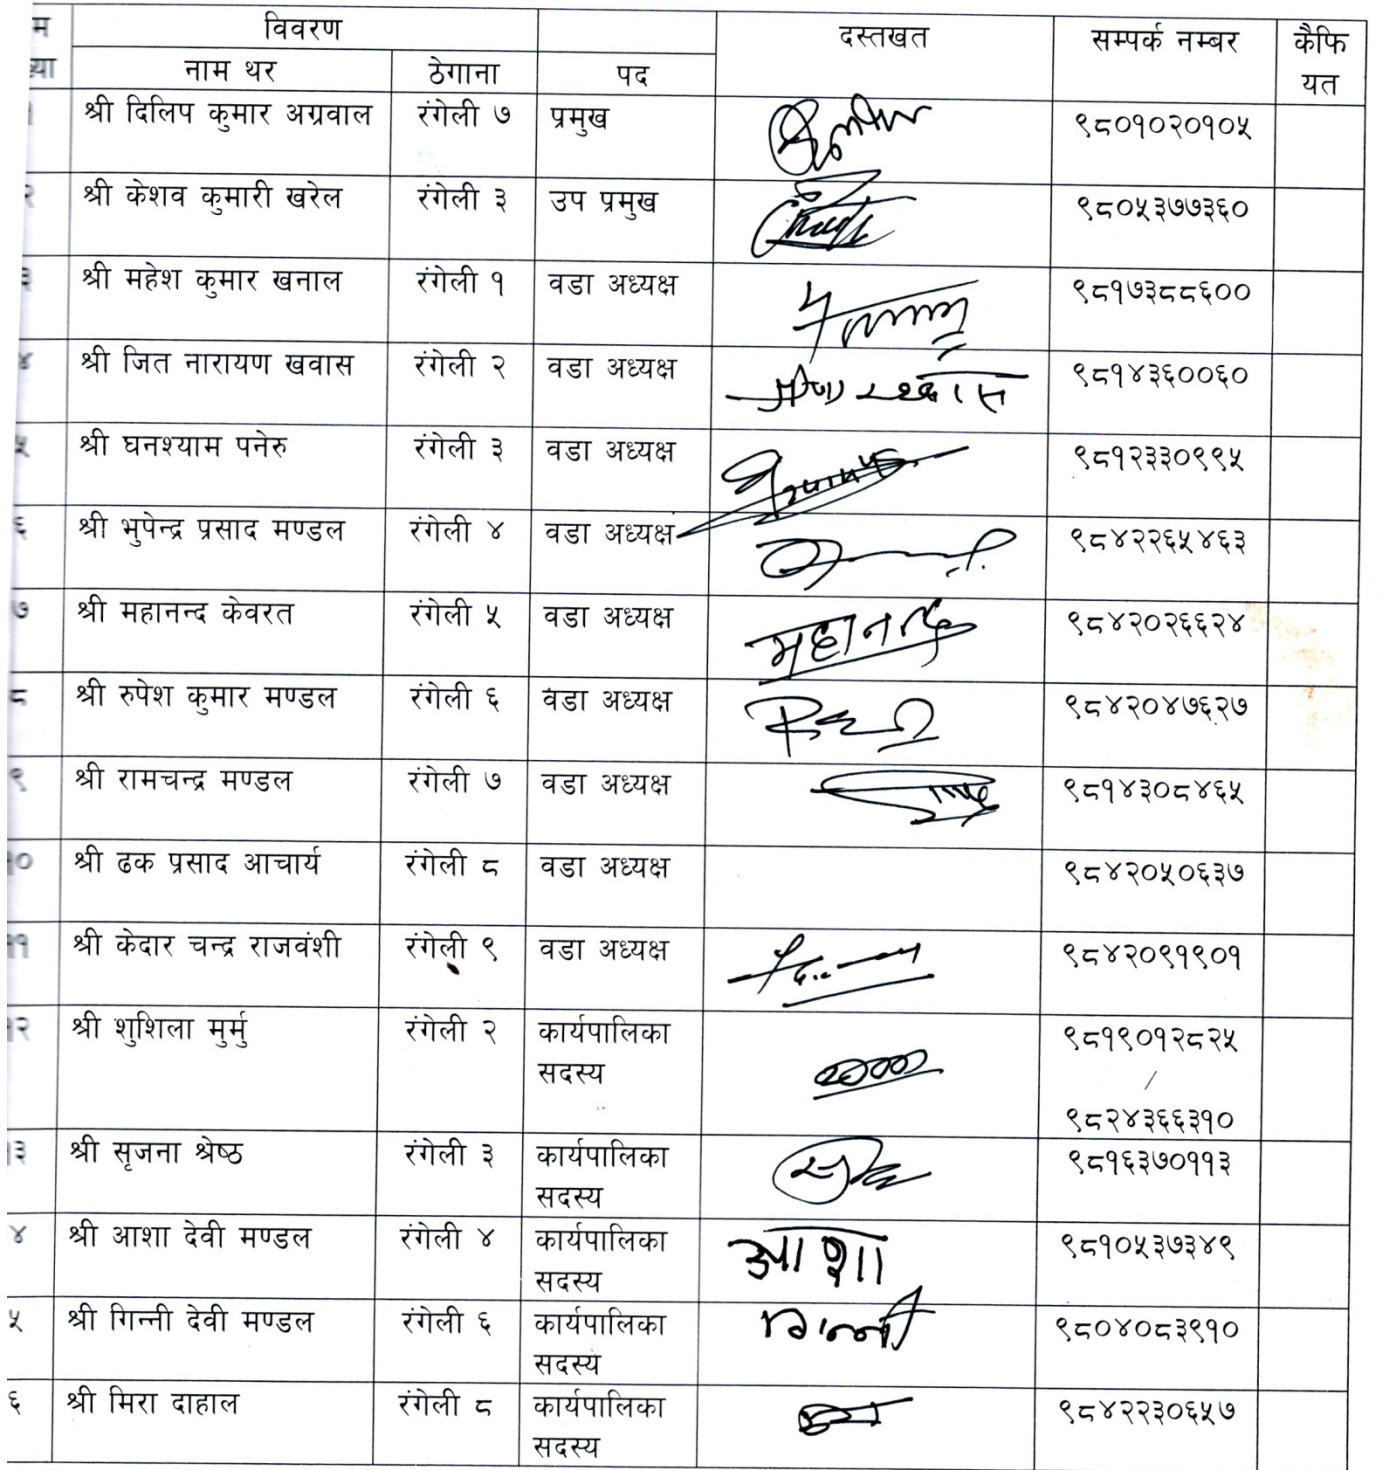 म विवरण दस्तखत सम्पर्क नम्बर कैफि
ख्या नाम थर ठेगाना पद यत
१ श्री दिलिप कुमार अग्रवाल रंगेली ७ प्रमुख ९८०१०२०१०५
२ श्री केशव कुमारी खरेल रंगेली ३ उप प्रमुख ९८०५३७७३६०
३ श्री महेश कुमार खनाल रंगेली १ वडा अध्यक्ष ९८१७३८८६००
४ श्री जित नारायण खवास रंगेली २ वडा अध्यक्ष ९८१४३६००६०
५ श्री घनश्याम पनेरु रंगेली ३ वडा अध्यक्ष ९८१२३३०९९५
६ श्री भुपेन्द्र प्रसाद मण्डल रंगेली ४ वडा अध्यक्ष ९८४२२६५४६३
७ श्री महानन्द केवरत रंगेली ५ वडा अध्यक्ष महानन्द ९८४२०२६६२४
८ श्री रुपेश कुमार मण्डल रंगेली ६ वडा अध्यक्ष ९८४२०४७६२७
९ श्री रामचन्द्र मण्डल रंगेली ७ वडा अध्यक्ष ९८१४३०८४६५
१० श्री ढक प्रसाद आचार्य रंगेली ८ वडा अध्यक्ष ९८४२०५०६३७
११ श्री केदार चन्द्र राजवंशी रंगेली ९ वडा अध्यक्ष ९८४२०९१९०१
१२ श्री शुशिला मुर्मु रंगेली २ कार्यपालिका ९८१९०१२८२५
सदस्य /
९८२४३६६३१०
१३ श्री सृजना श्रेष्ठ रंगेली ३ कार्यपालिका ९८१६३७०११३
सदस्य
४ श्री आशा देवी मण्डल रंगेली ४ कार्यपालिका आशा ९८१०५३७३४९
सदस्य
५ श्री गिन्नी देवी मण्डल रंगेली ६ कार्यपालिका गिन्नी ९८०४०८३९१०
सदस्य
६ श्री मिरा दाहाल रंगेली ८ कार्यपालिका ९८४२२३०६५७
सदस्य